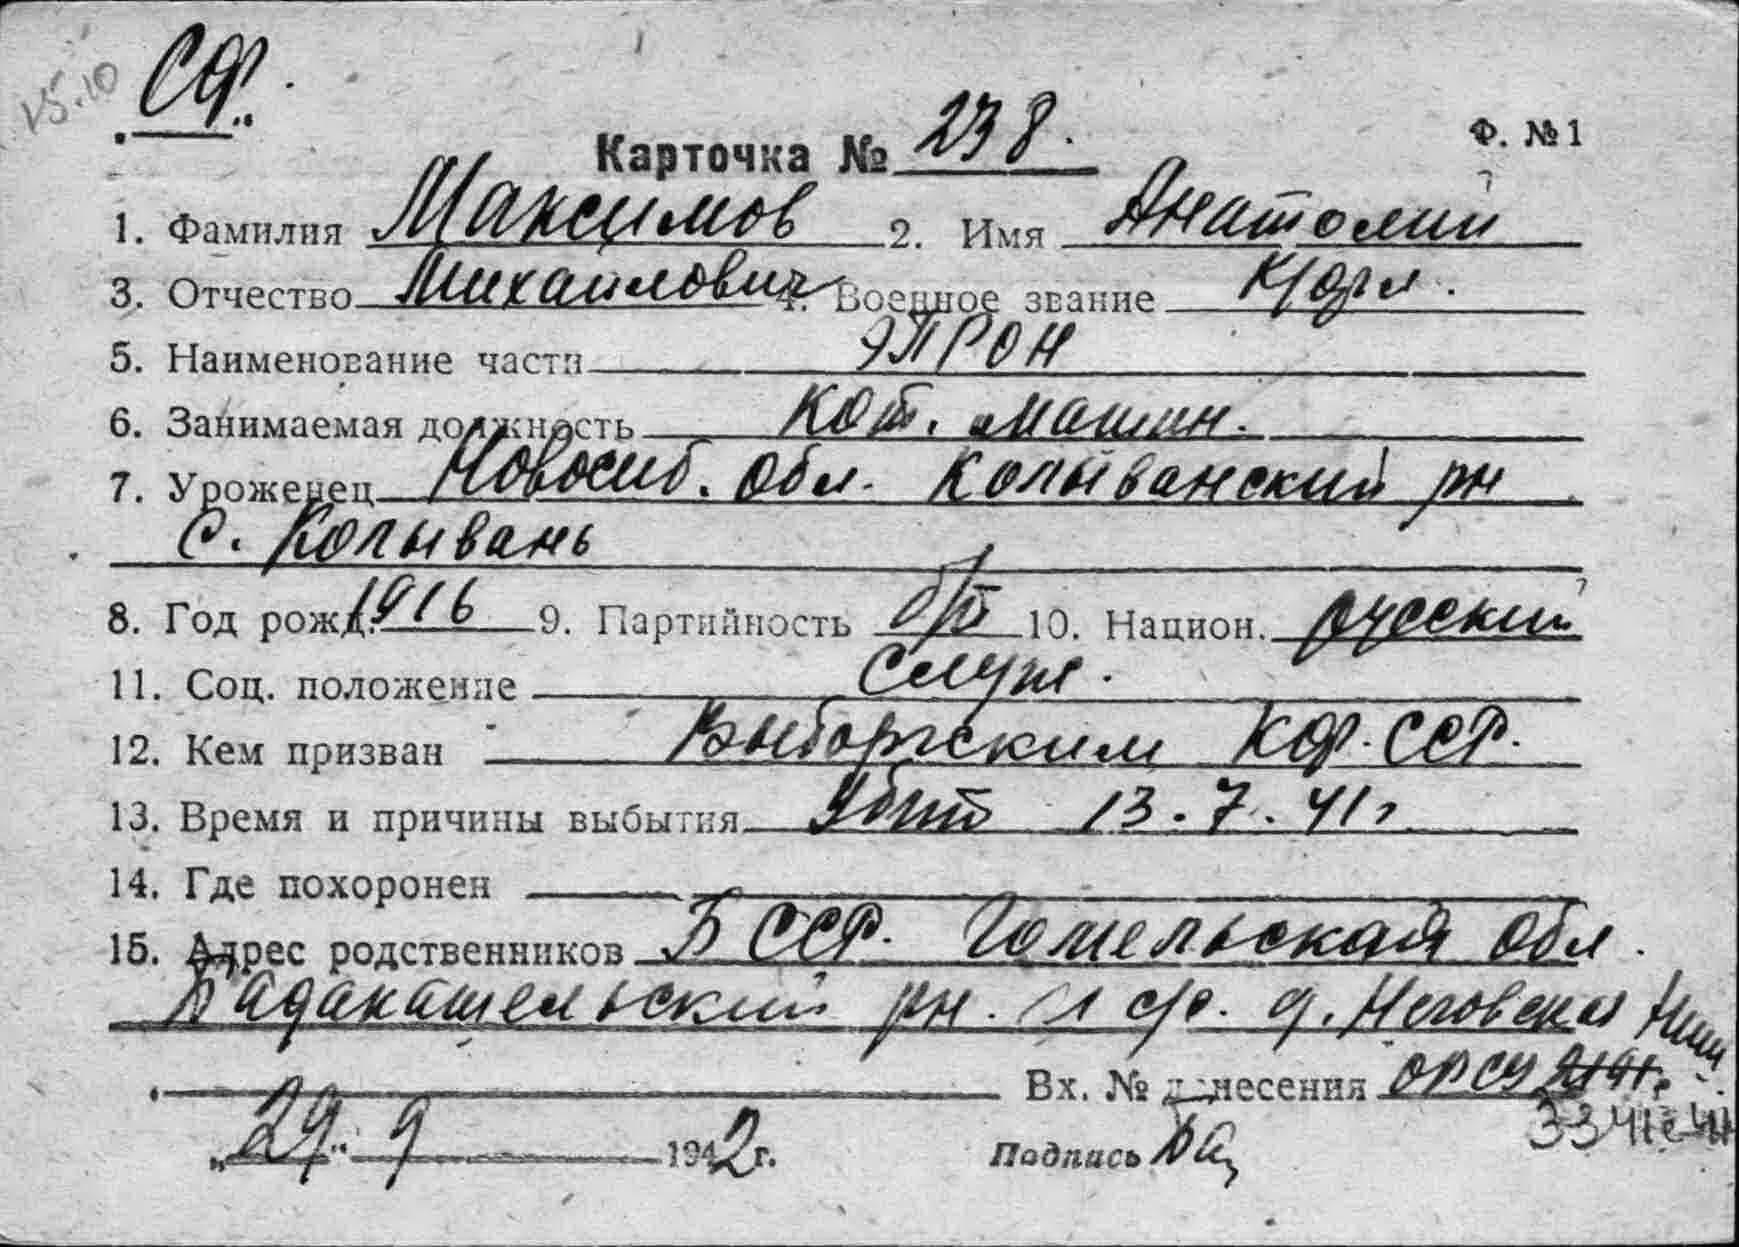 V5.10 СФ.
Карточка № 238. Ф. №1
1. Фамилия Максимов 2. Имя Анатолий
3. Отчество Михайлович 4. Военное звание К/фл.
5. Наименование части ЭПРОН
6. Занимаемая должность Кот. машин.
7. Уроженец Новосиб. обл. Колыванский рн
с. Колывань
8. Год рожд. 1916 9. Партийность б/п 10. Национ. русский
11. Соц. положение служ.
12. Кем призван Выборгским КФ.ССР.
13. Время и причины выбытия убит 13.7.41г
14. Где похоронен
15. Адрес родственников БССР. Гомельская обл.
рн. с/с. д.
Вх. № донесения ОРСУ
3341с-41
„29" 9 1942г. Подпись